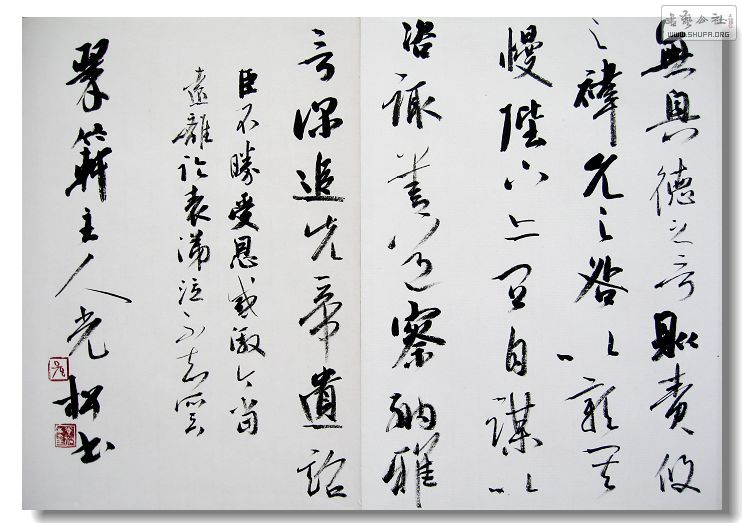 書藝公社
WWW.SHUFA.ORG
無具德之言則責攸
之禕允之咎以彰其
慢陛下亦宜自謀以
咨諏善道察納雅
言深追先帝遺詔
臣不勝受恩感激今當
遠離臨表涕泣不知所云
翠主人光松書